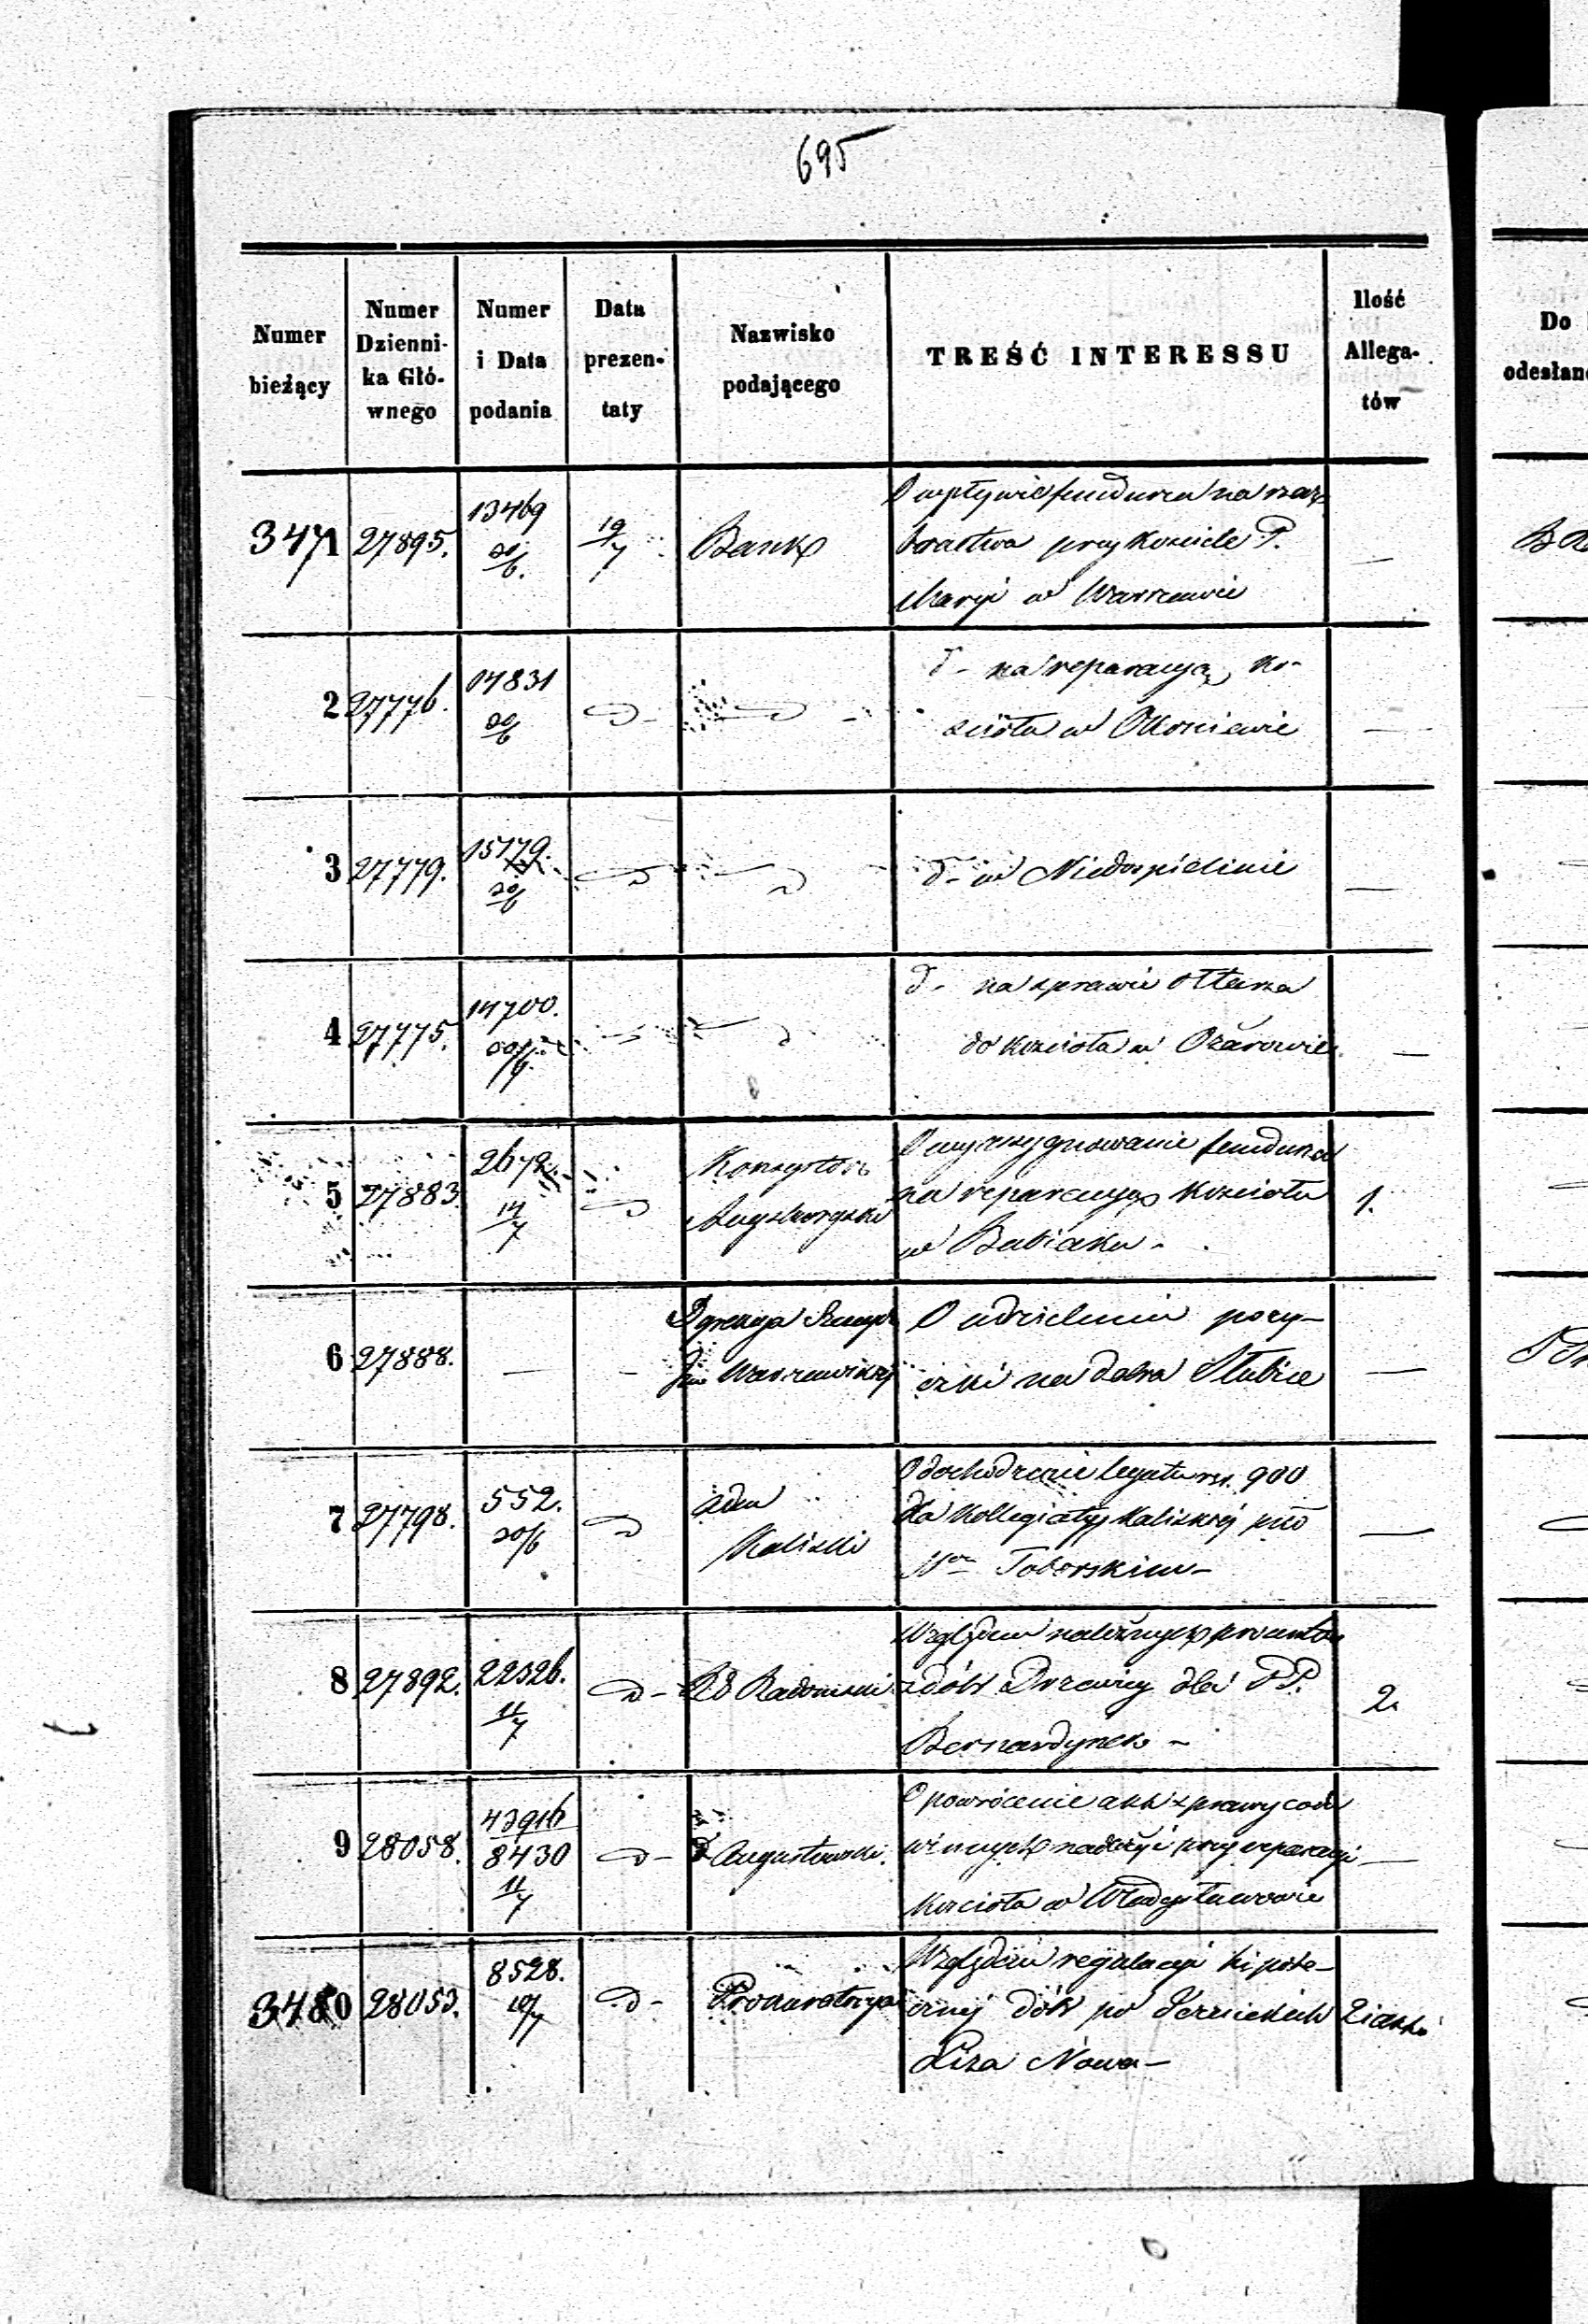 695
Numer bieżący
Numer Dzienni- ka Głó- wnego
Numer i Data podania
Data prezen- taty
Nazwisko podającego
TREŚĆ INTERESSU
Ilość Allega- tów
Do
odesłan
3471 27895. 13469 19/7 Bank
O wpływie funduszu na rzecz
bractwa przy Kościele P.
Maryi w Warszawie —
2 27776. 14831 20/6 d -
d - na reparacyą ko-
ścioła w —
3 27779. 15179. 20/6
d - w Niedospielinie —
4 27775. 14700.
d - na sprawie ołtarza
do kościoła w Ożarowie —
5 27883. 2672. 14/7 Konsystorz
Augsburgski
O wyassygnowanie funduszu
na reparacyą Kościoła 1.
w Babiaku -
6 27888. — — Dyrekcya
Warszawskiej
O udzielenie poży-
czki na dobra Słubice —
7 27798. 552. 20/6
Kaliski
O dochodzenie legatu rsr. 900
dla Kollegiaty Kaliskiej —
Toborskiem -
8 27892. 22526. 11/7 d - Rd Radomski
Względem należnych
z dóbr Drzewicy dla PP. 2.
Bernardynek -
9 28058. 43916
8430 11/7 d - Augustowski.
O powrócenie akt sprawy
przy reparacyi —
Kościoła w Władysławowie
3480 28053. 8528. 10/7 d - Prokuratorya
Względem regulacyi hipote-
cznej dóbr po
Liza Nowa -